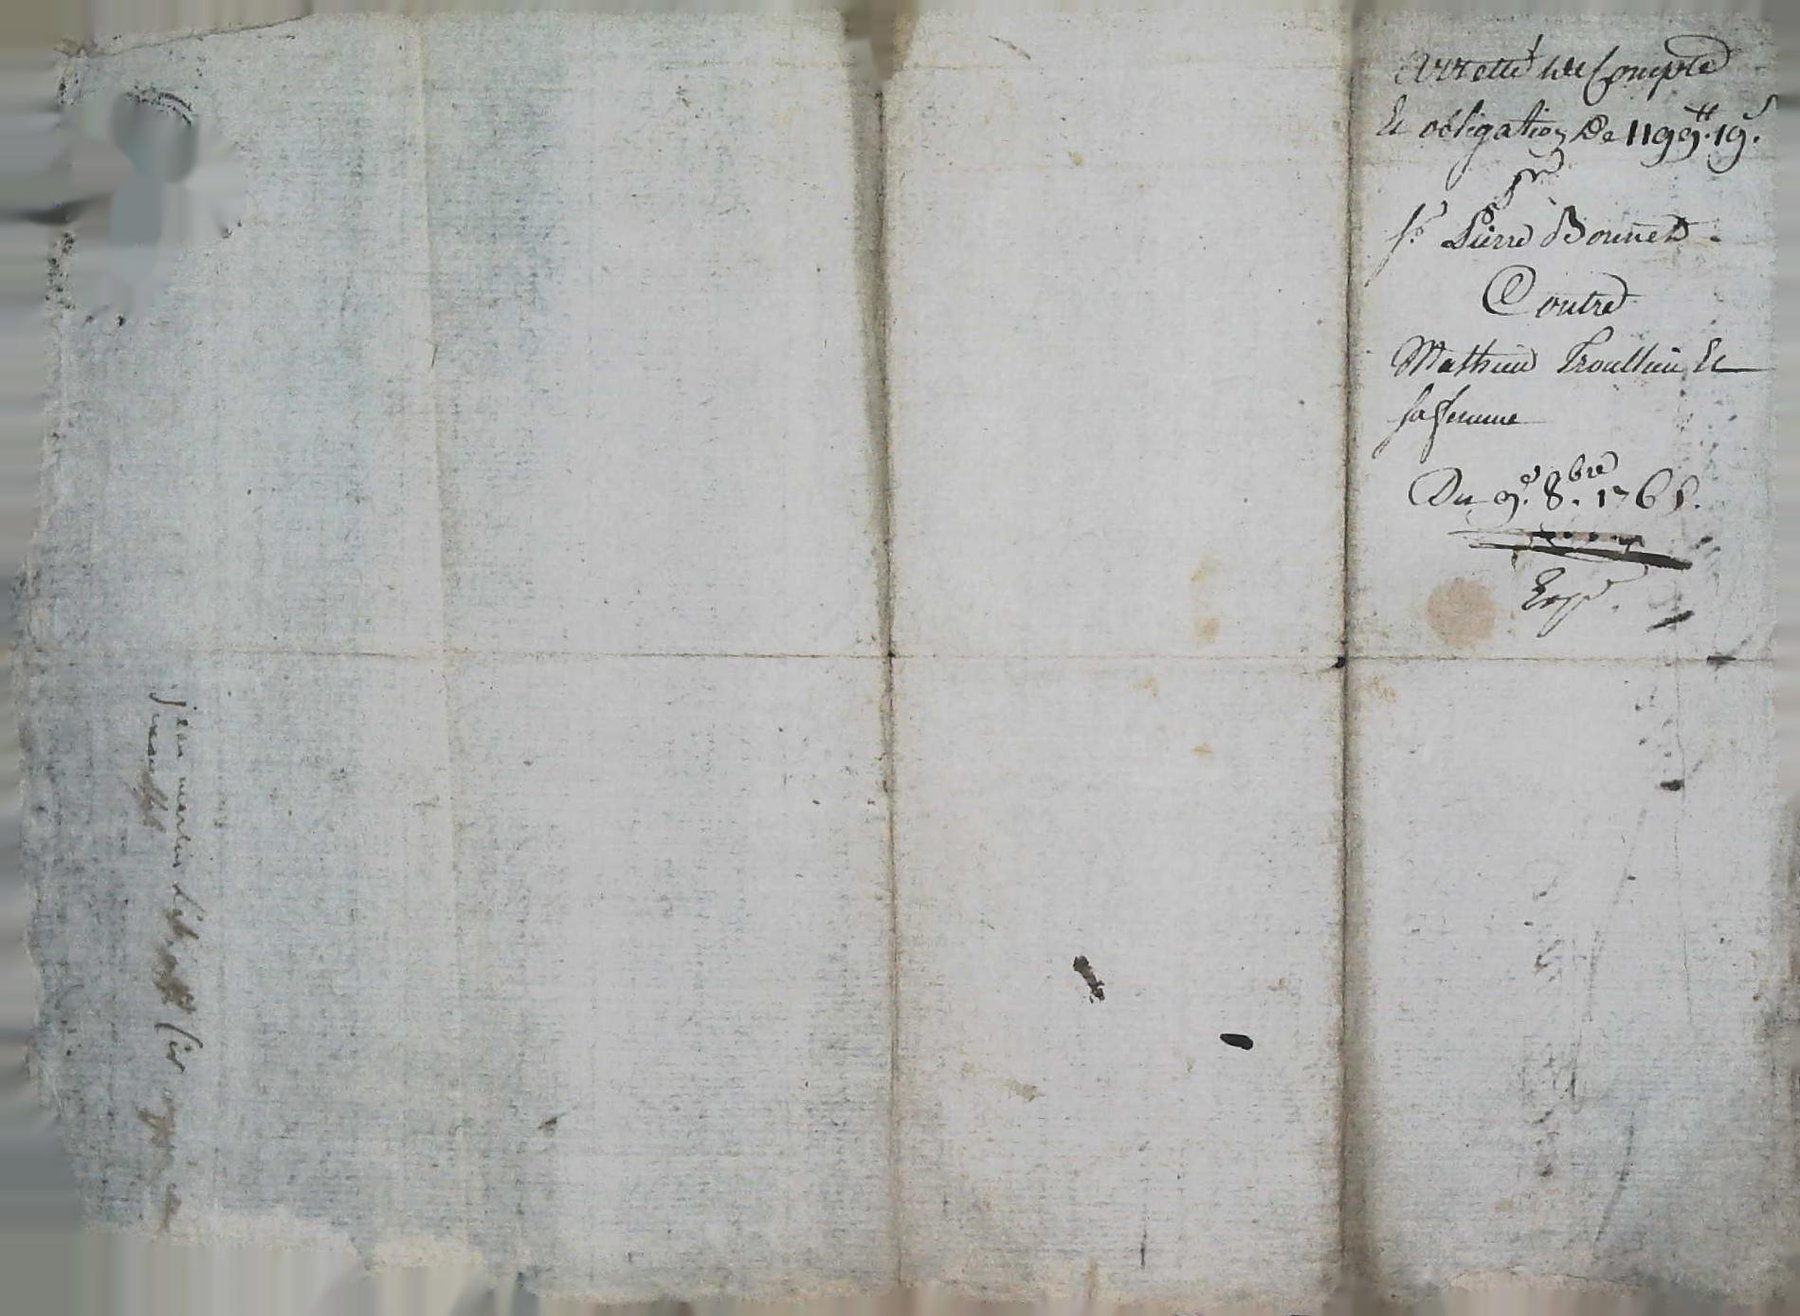 Arretté de Compte
Et obligation De 1199.₶ 19.ˢ
pʳ
sʳ Pierre Bonnet
Contre
Mathieu Troullieu Et
sa femme
Du 9.ᵉ 8.ᵇʳᵉ 1765.
Expᵉ.
jean martin